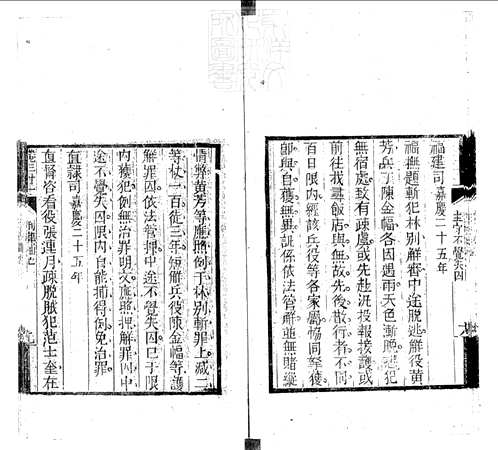 福建司 嘉慶二十五年
福撫題斬犯林別解審中途脫逃解役黃
芳兵丁陳金幅各因遇雨天色漸晚恐犯
無宿處致有疎虞或先赴汛投報接護或
前往我尋飯店與無故先後散行者不同
百日限內經該兵役等各家屬暢同拏獲
即與自獲無異訊係依法管解並無賄縱
主守不覺失囚
情弊黃芳等應照例于林別斬罪上減二
等杖一百徒三年短解兵役陳金幅等護
解罪囚依法管押中途不覺失囚已于限
內獲犯例無治罪明文應照押解罪囚中
途不覺失囚限內自能捕得例免治罪
直隸司 嘉慶二十五年
直督咨看役張連月疎脫賊犯范士奎在